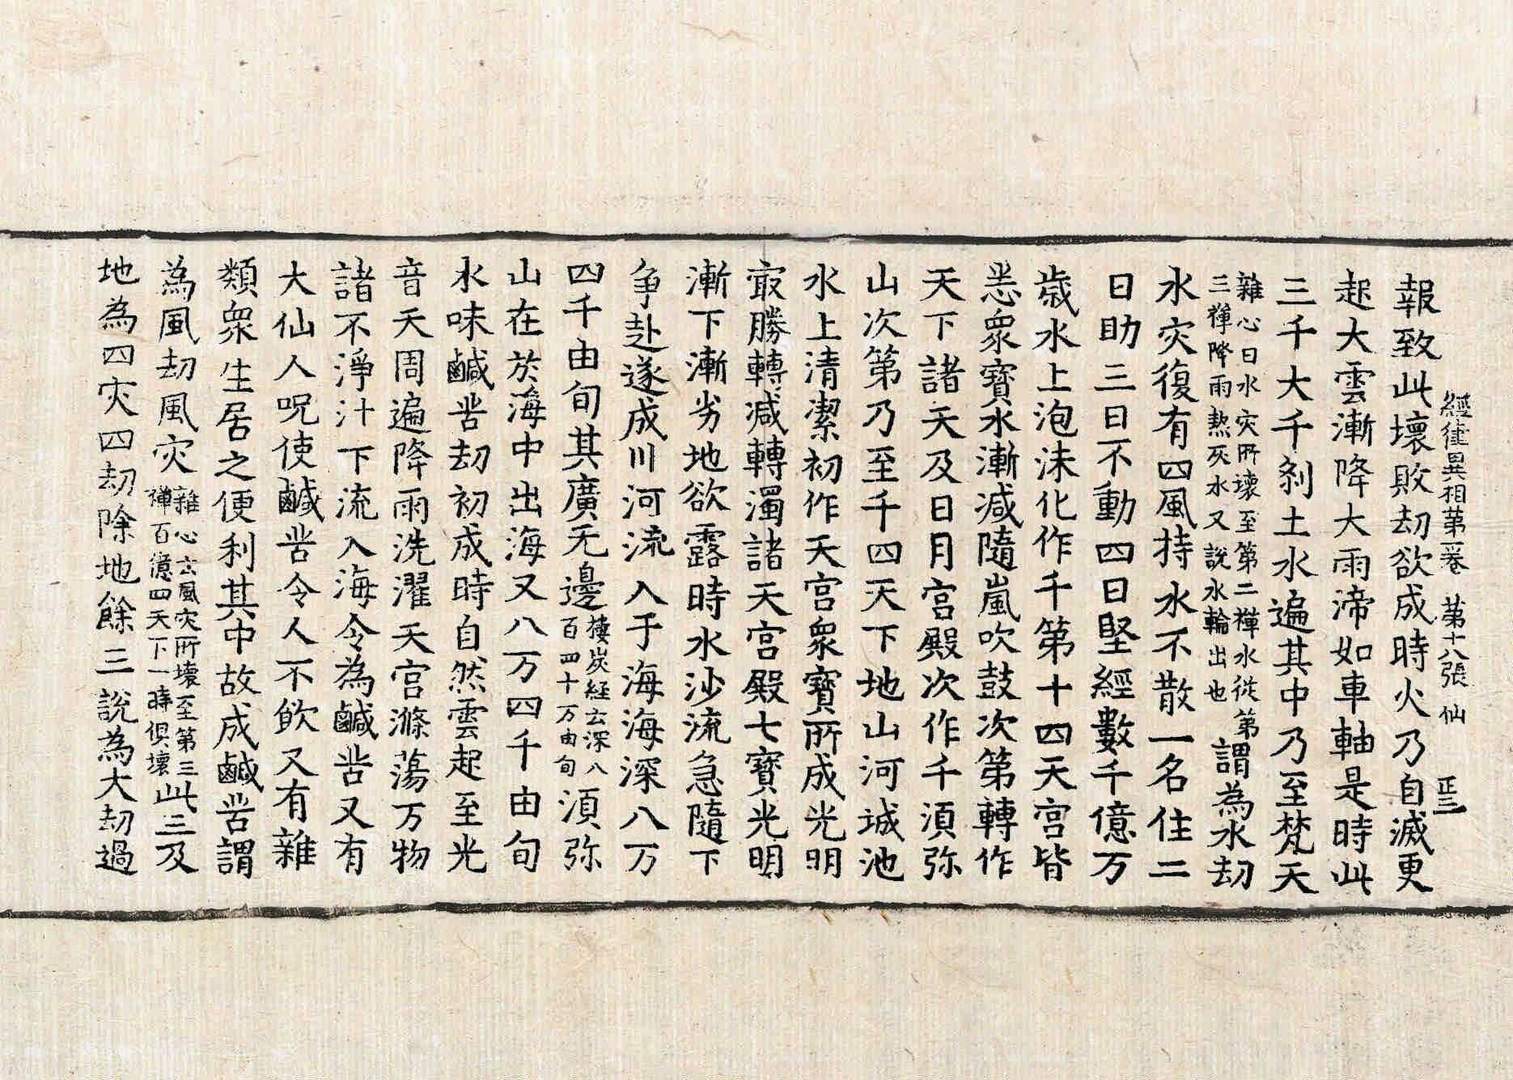 經律異相第一卷 第十八張 仙
報致此壞敗劫欲成時火乃自滅更
起大雲漸降大雨渧如車軸是時此
三千大千剎土水遍其中乃至梵天
雜心曰水灾所壞至第二禪水從第
三禪降雨熱灰水又說水輪出也
謂為水劫
水灾復有四風持水不散一名住二
日助三日不動四日堅經數千億万
歲水上泡沫化作千第十四天宮皆
悉衆寶水漸減隨嵐吹鼓次第轉作
天下諸天及日月宮殿次作千湏弥
山次第乃至千四天下地山河城池
水上清潔初作天宮衆寶所成光明
冣勝轉減轉濁諸天宮殿七寶光明
漸下漸劣地欲露時水沙流急隨下
争赴遂成川河流入于海海深八万
四千由旬其廣无邊
樓炭經云深八
百四十万由旬
湏弥
山在於海中出海又八万四千由旬
水味鹹苦劫初成時自然雲起至光
音天周遍降雨洗濯天宮滌蕩万物
諸不淨汁下流入海令為鹹苦又有
大仙人呪使鹹苦令人不飲又有雜
類衆生居之便利其中故成鹹苦謂
為風劫風灾
雜心云風灾所壞至第三
禪百億四天下一時俱壞
此三及
地為四灾四劫除地餘三說為大劫過